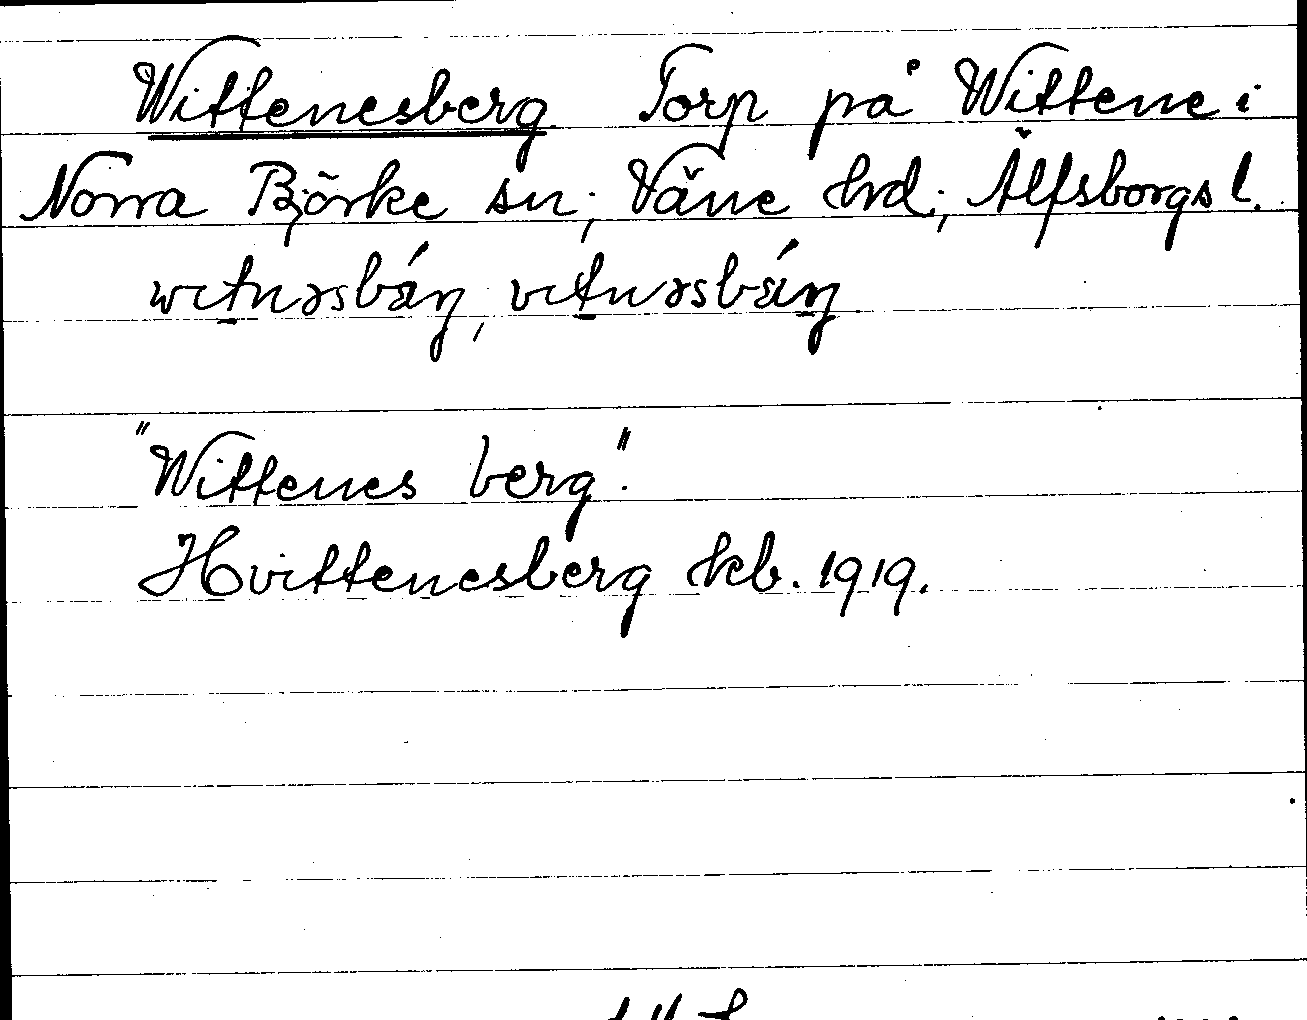 Wittenesberg Torp på Wittene i
Norra Björke sn; Väne hrd; Älfsborgs l.
"Wittenes berg".
Hvittenesberg kb. 1919.